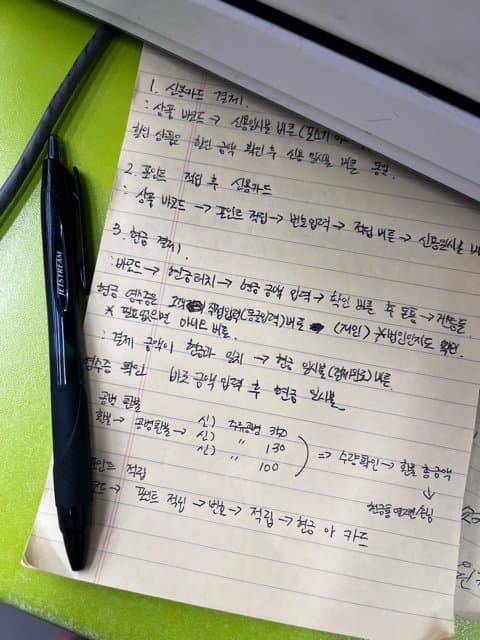 1. 신용카드 결제.
: 상품 바코드 → 신용일시불 버튼 (포스기 아
할인 상품은 할인 금액 확인 후 신용 일시불 버튼 동일.
2. 포인트 적립 후 신용카드
: 상품 바코드 → 포인트 적립 → 번호입력 → 적립 버튼 → 신용일시불 버
3. 현금 결제.
: 바코드 → 현금터치 → 현금 금액 입력 → 확인 버튼 후
현금 영수증은 고객 직접입력 버튼 (개인) *법인인지도 확인.
* 필요없으면 아니오 버튼.
: 결제 금액이 현금과 일치 → 현금 일시불 버튼.
영수증 확인 바로 금액 입력 후 현금 일시불
공병 환불
환불 → 공병환불 → 신) 주류공병 350
신) " 130
신) " 100
⇒ 수량확인 → 환불 총금액
↓
포인트 적립
코드 → 포인트 적립 → 번호 → 적립 → 현금 or 카드
JETSTREAM